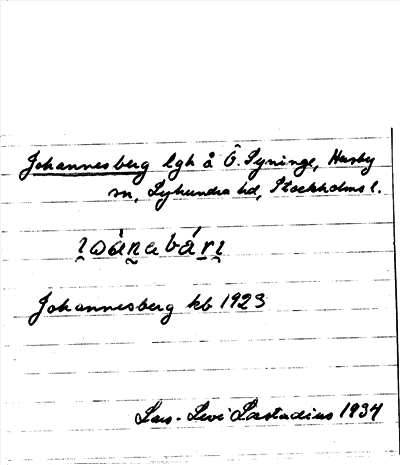 Johannesberg lgh å Ö. Syninge, Husby
sn, Lyhundra hd, Stockholms l.
Johannesberg kb 1923
Lars-Levi Læstadius 1934